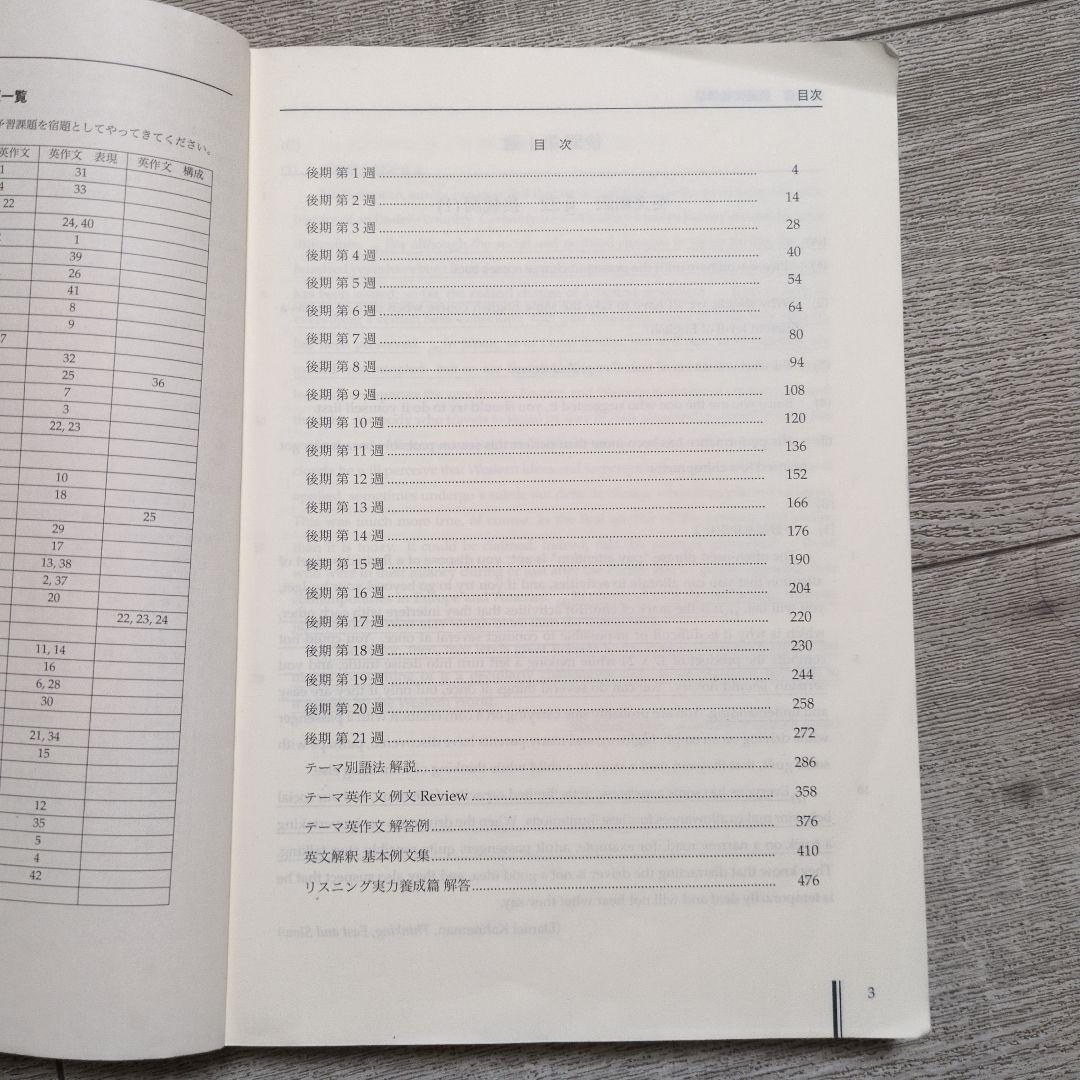 一覧
予習課題を宿題としてやってきてください。
英作文 英作文 表現 英作文 構成
31
33
22
24, 40
1
39
26
41
8
9
7
32
25 36
7
3
22, 23
10
18
25
29
17
13, 38
2, 37
20
22, 23, 24
11, 14
16
6, 28
30
21, 34
15
12
35
5
4
42
目次
目 次
後期 第 1 週 4
後期 第 2 週 14
後期 第 3 週 28
後期 第 4 週 40
後期 第 5 週 54
後期 第 6 週 64
後期 第 7 週 80
後期 第 8 週 94
後期 第 9 週 108
後期 第 10 週 120
後期 第 11 週 136
後期 第 12 週 152
後期 第 13 週 166
後期 第 14 週 176
後期 第 15 週 190
後期 第 16 週 204
後期 第 17 週 220
後期 第 18 週 230
後期 第 19 週 244
後期 第 20 週 258
後期 第 21 週 272
テーマ別語法 解説 286
テーマ英作文 例文 Review 358
テーマ英作文 解答例 376
英文解釈 基本例文集 410
リスニング実力養成篇 解答 476
3